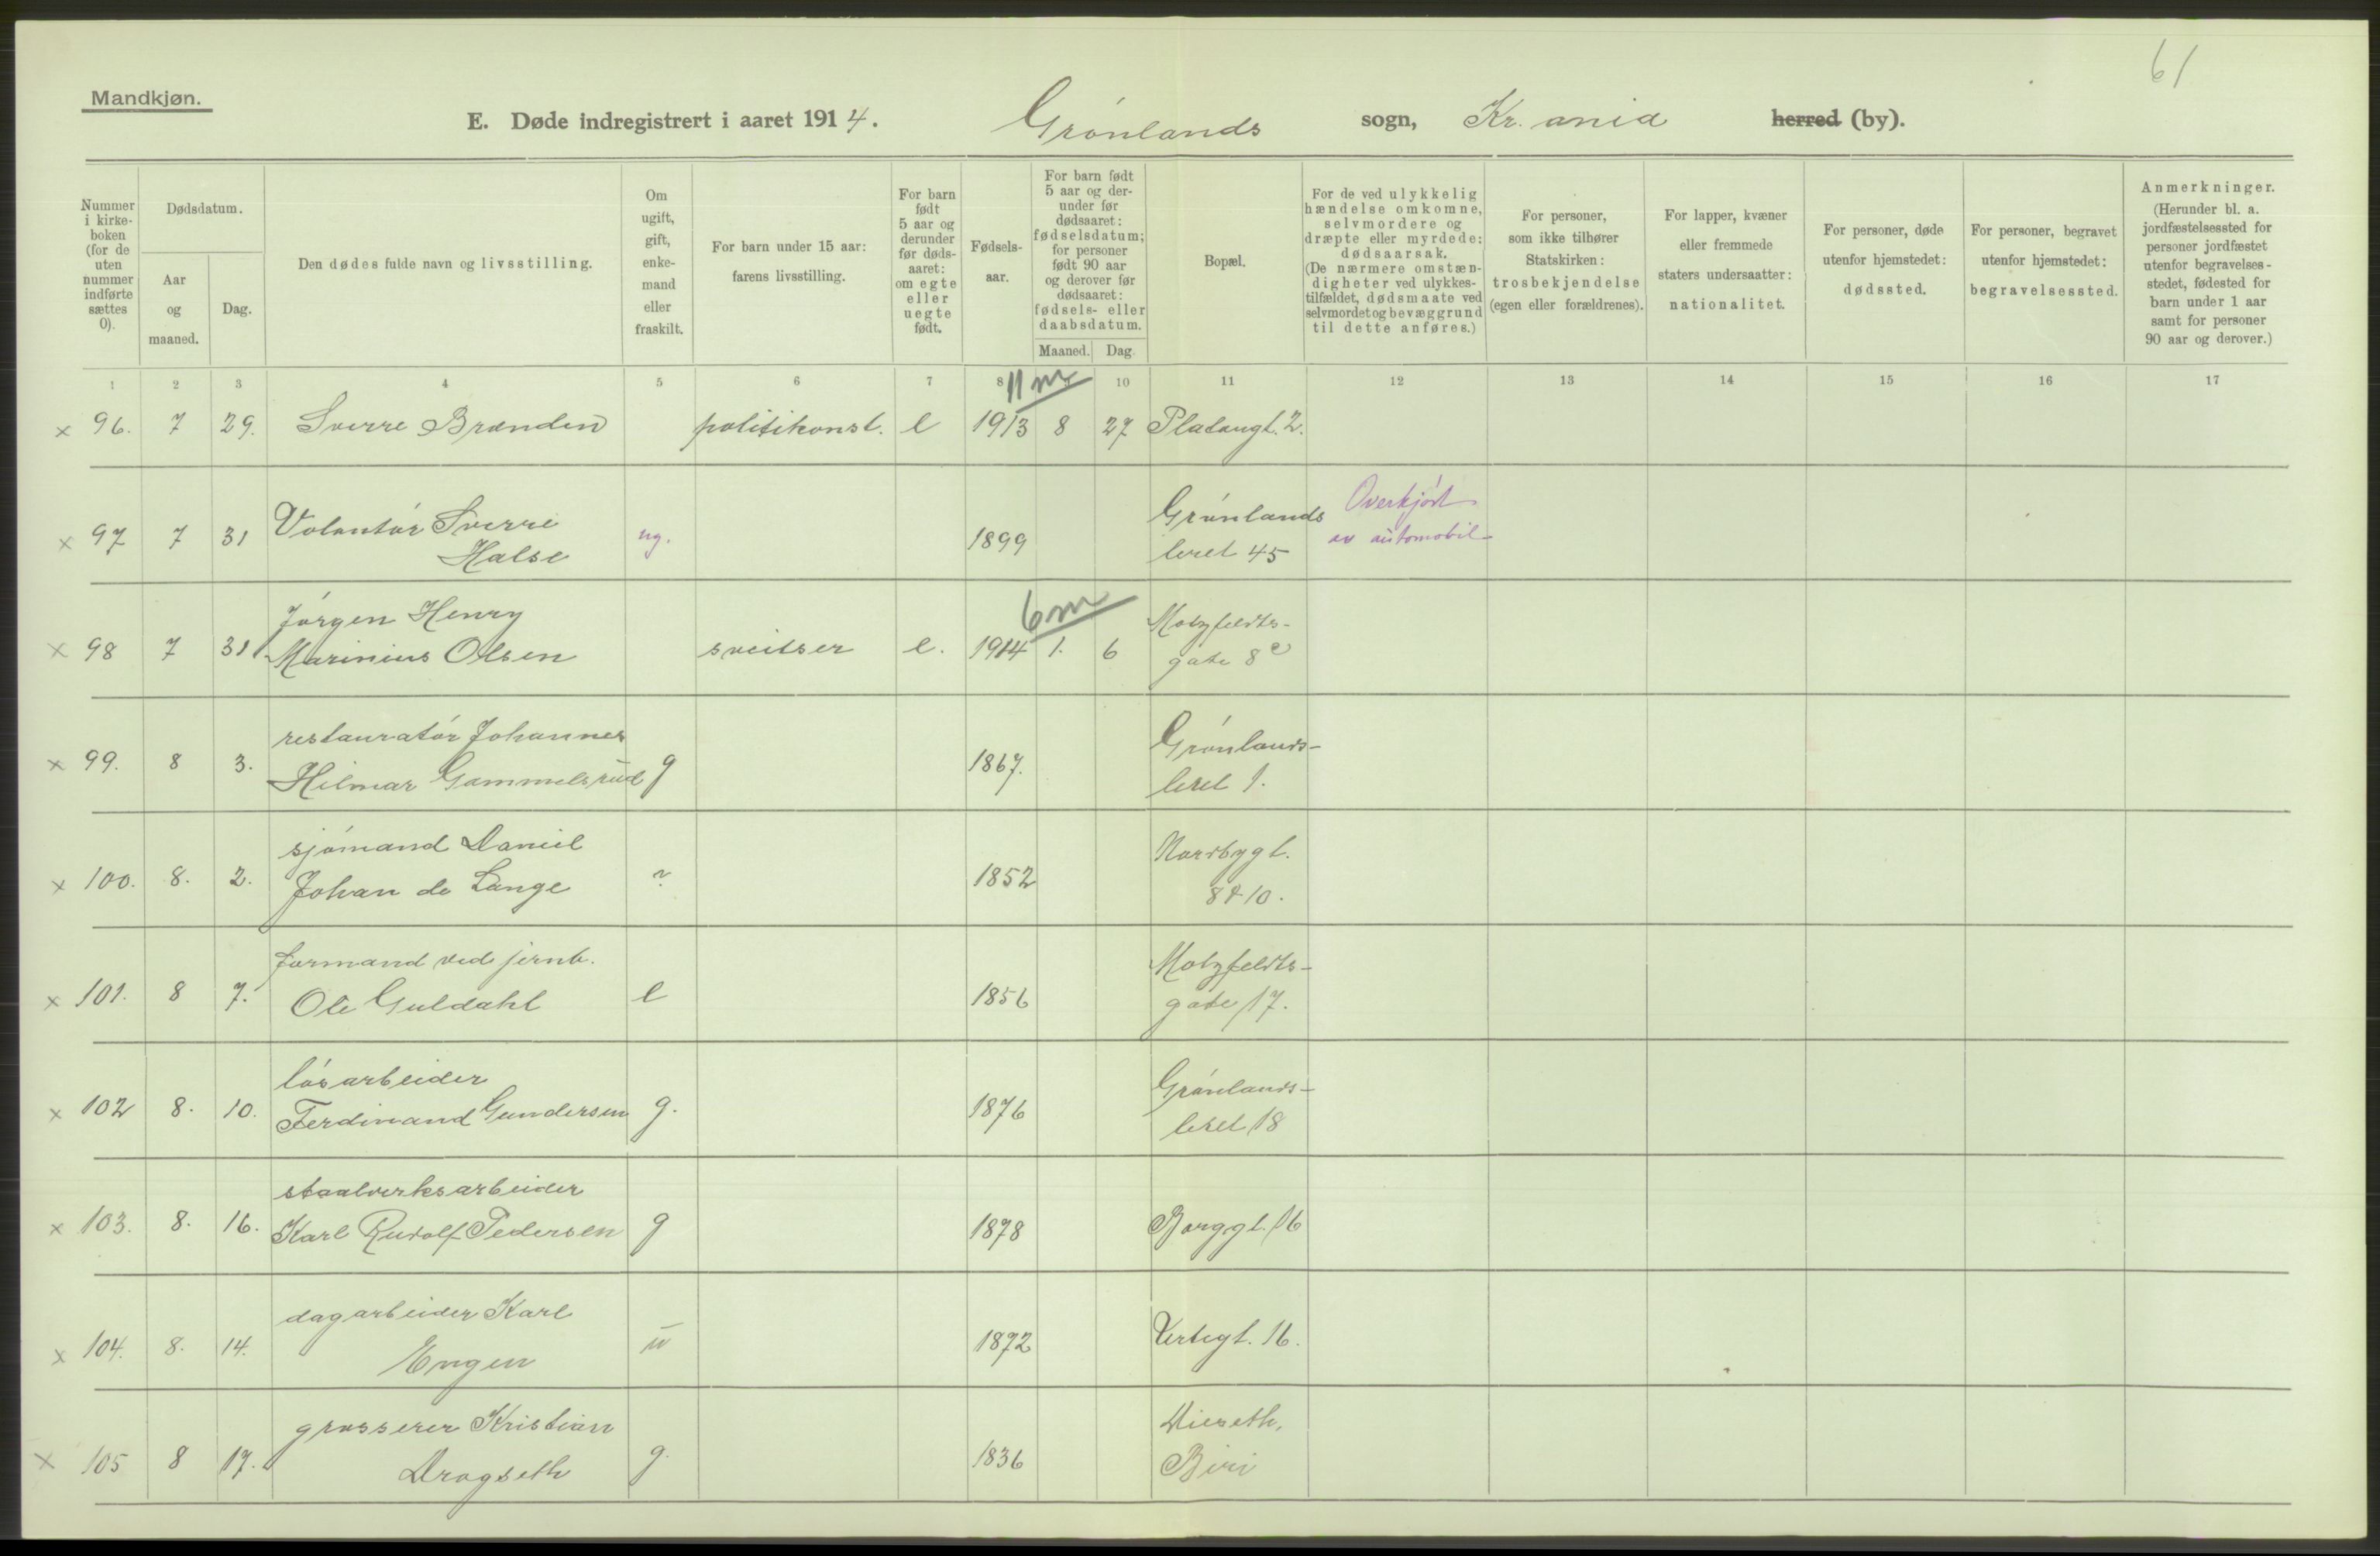 61
Mandkjøn.
E. Døde indregistrert i aaret 1914. Grønlands sogn, Kr. ania herred (by).
Nummer i kirke-boken (for de uten nummer indførte sættes 0).
Dødsdatum.
Aar og maaned.
Dag.
Den dødes fulde navn og livsstilling.
Om ugift, gift, enke-mand eller fraskilt.
For barn under 15 aar: farens livsstilling.
For barn født 5 aar og derunder før døds-aaret: om egte eller uegte født.
Fødsels-aar.
For barn født 5 aar og der-under før dødsaaret: fødselsdatum; for personer født 90 aar og derover før dødsaaret: fødsels- eller daabsdatum.
Maaned. Dag.
Bopæl.
For de ved ulykkelig hændelse omkomne, selvmordere og dræpte eller myrdede: dødsaarsak. (De nærmere omstæn-digheter ved ulykkes-tilfældet, dødsmaate ved selvmordet og bevæggrund til dette anføres.)
For personer, som ikke tilhører Statskirken: trosbekjendelse (egen eller forældrenes).
For lapper, kvæner eller fremmede staters undersaatter: nationalitet.
For personer, døde utenfor hjemstedet: dødssted.
For personer, begravet utenfor hjemstedet: begravelsessted.
Anmerkninger. (Herunder bl. a. jordfæstelsessted for personer jordfæstet utenfor begravelses-stedet, fødested for barn under 1 aar samt for personer 90 aar og derover.)
1 2 3 4 5 6 7 8 10 11 12 13 14 15 16 17
11 m
x 96. 7 29. Sverre Brænden politikonst. e 1913 8 27 Platougt. 2.
x 97 7 31 Volontør Sverre Halse ug. 1899 Grønlands leret 45 Overkjørt av automobil
6 m
x 98 7 31 Jørgen Henry Marinius Olsen sveitser e. 1914 1. 6 Motzfeldts-gate 8 c
x 99. 8 3. restauratør Johannes Hilmar Gammelsrud g 1867. Grønlands-leret 1.
x 100. 8. 2. sjømand Daniel Johan de Lange ? 1852 Norbygt. 8 & 10.
x 101. 8 7. formand ved jernb. Ole Guldahl e 1856 Motzfeldts-gate 17.
x 102 8. 10. løsarbeider Ferdinand Gundersen g. 1876 Grønlands-leret 18
x 103. 8. 16. staalverksarbeider Karl Rudolf Pedersen g 1878 Borggt 16
x 104. 8. 14. dagarbeider Karl Engen u 1872 Vertygt. 16.
x 105 8 17. grosserer Kristian Dragseth g. 1836 Biri